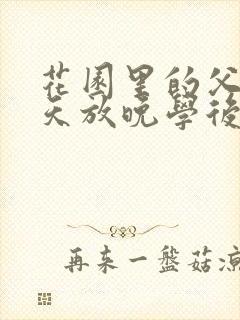 花園里的父
天放晚學後
再來一盤菇凉